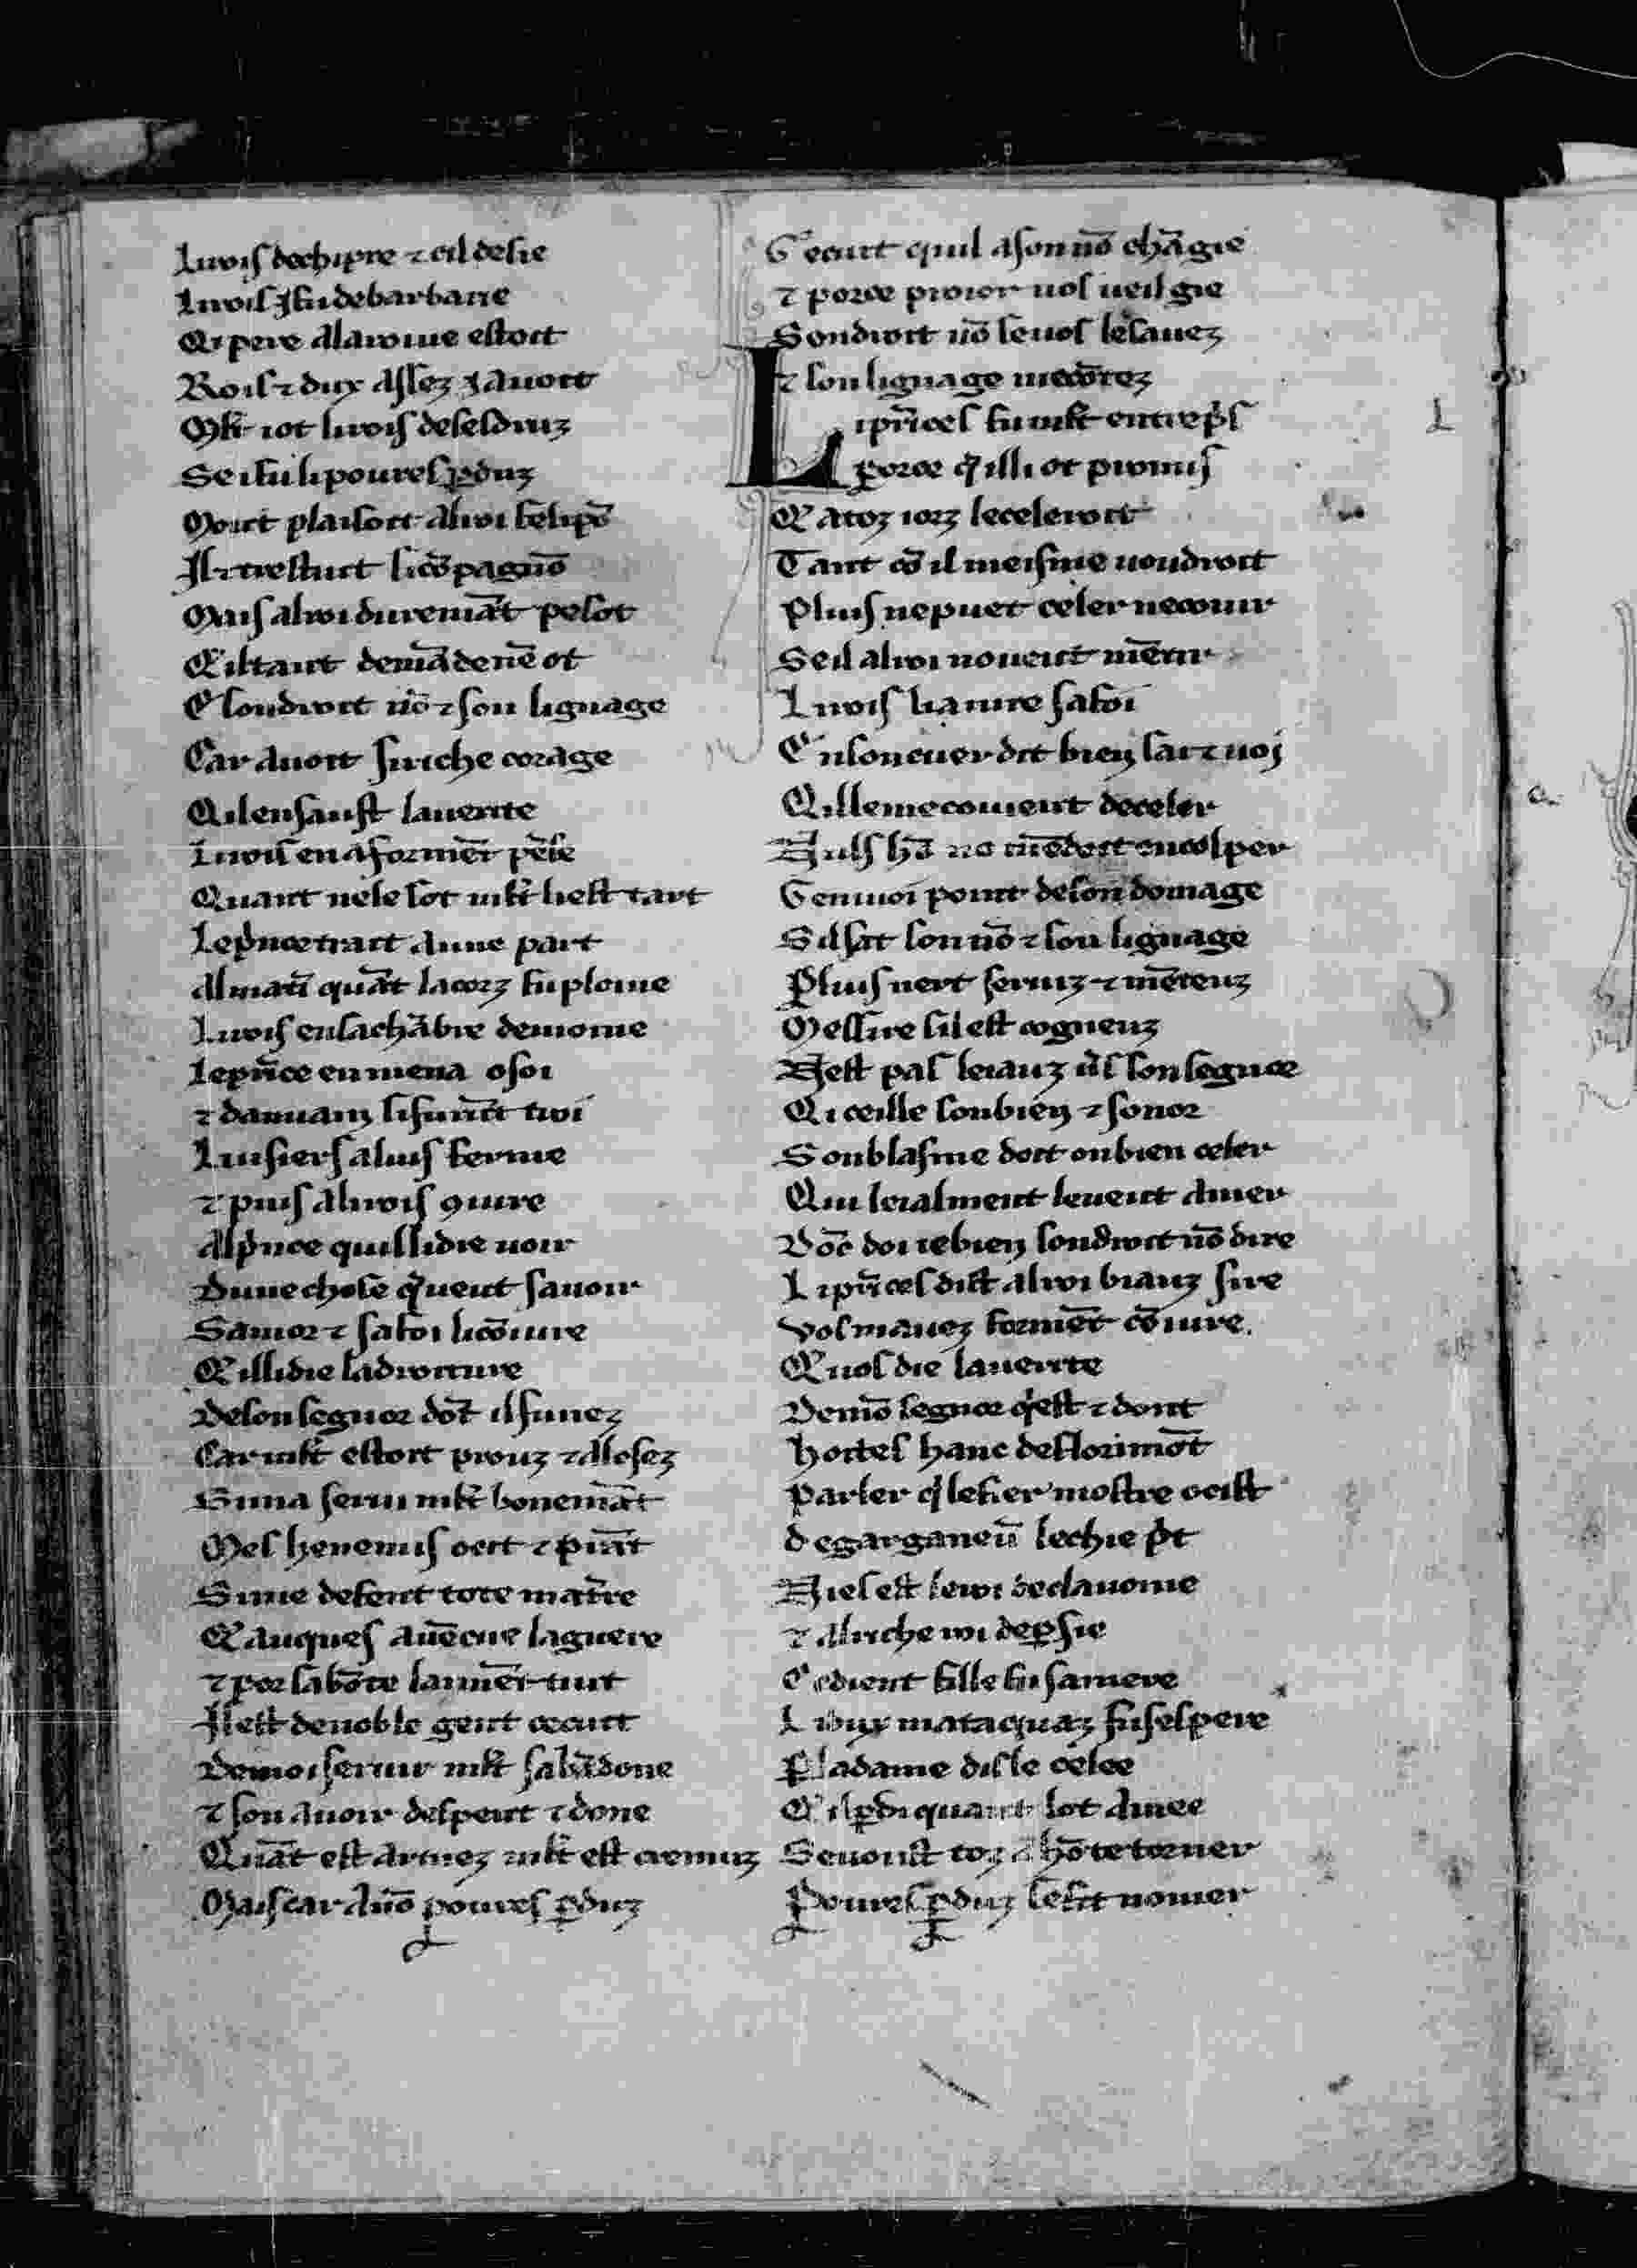 Li rois de chipre ⁊ cil de sie
Li rois ⁊ fu de barbarie
Qi pere a la roine estoit
Rois ⁊ dux assez ⁊ auoit
Mlt ot li rois de ses druz
Se i fu li poures ꝑduz
Moult plaisoit al roi felipō
Il ⁊ trestuit si cōpagnō
Mais al roi duremāt pesot
Qil tant demādene ot
E son droit nō ⁊ son lignage
Car auoit si riche corage
Qil en saust la uerite
Li rois en a formēt pēse
Quant ne le sot mlt li est tart
Le prince trait a une part
Al matī quāt la corz fu plenie
Li rois en sa chābre demoine
Le prīce en mena o soi
⁊ damian si furēt troi
Li uis fers al uis ferme
⁊ puis a li rois 9iure
Al prīce quil li die uoir
Dune chose queut sauoir
Samor ⁊ sa foi li cōiure
Qil li die la droiture
De son segnor dōt il fu nez
Car mlt estoit prouz ⁊ alosez
Si ma serui mlt bonemāt
Mes henemis ocit ⁊ prāt
Si me defent tote ma tr̄e
Qauques auēc ne la guere
⁊ por sa bōte lai mēt tint
Il est de noble gent ce cuit
De moi seruir mlt sabādone
⁊ son auoir despent ⁊ done
Quāt est armez mlt est cremuz
Mais car a nō poures ꝑduz
Ge cuit quil a son nō chāgie
⁊ porce proier uos ueil gie
Son droit nō se uos le sauez
⁊ son lignage me cōtez
Li prīces fu mlt entrepīs
Porce qil li ot promis
Qa toz iorz le celeroit
Tant cō il meisme uoudroit
Pluis ne puet celer ne courir
Se il al roi no ueut mētir
Li rois li a iure sa foi
En son cuer dit bien sai ⁊ uoi
Qil le me couient deceler
Nuls hō no mē doit encolper
Ge nuoi point de son domage
Sil sat son nō ⁊ son lignage
Pluis nert seruiz ⁊ mēteuz
Messire sil est cogneuz
Nest pas leiauz uīs son segnor
Qi ceille son bien ⁊ sonor
Son blasme doit on bien celer
Qui leialment le ueut amer
Dōc doi ie bien son droit nō dire
Li prīces dist al roi biauz sire
Vos mauez formēt cōiure
Q uos die la uerite
De mō segnor qi est ⁊ dont
Hoites hanc de florimōt
Parler q le fier mostre ocist
De garganeū le chie pt
Niés est le roi desclauonie
⁊ al riche roi de ꝑsie
Ce dient fille fu sa mere
Li dux mataquaz fu ses pere
P la dame de lille celee
Qil ꝑdi quant lot amee
Se uoust toz a hōte torner
Poures ꝑduz se fit nomer
L